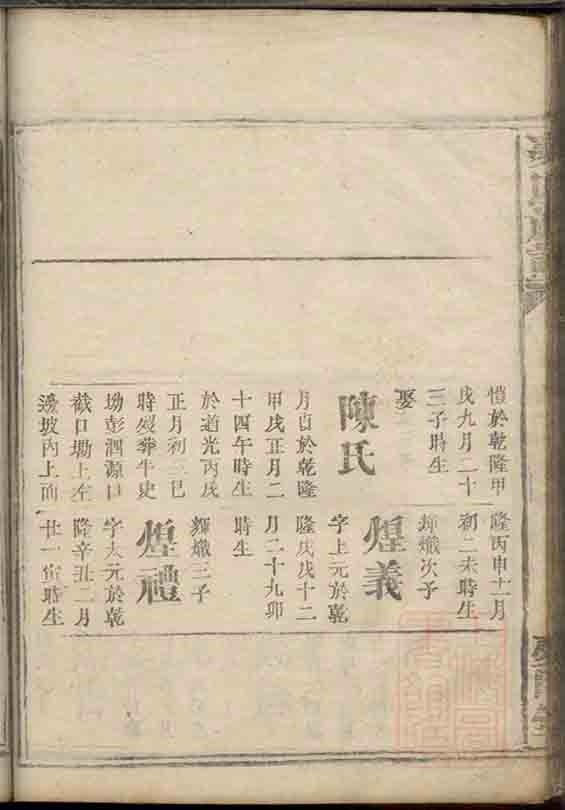 愷於乾隆甲
戌九月二十
三子時生
娶
陳氏
月酉於乾隆
甲戌正月二
十四午時生
於道光丙戌
正月初三巳
時歿葬牛史
坳彭泗源口
截口塅上左
邊坡內上面
隆丙申十一月
初二未時生
輝熾次子
煌義
字上元於乾
隆戊戌十二
月二十九卯
時生
輝熾三子
煌禮
字大元於乾
隆辛丑二月
廿一寅時生